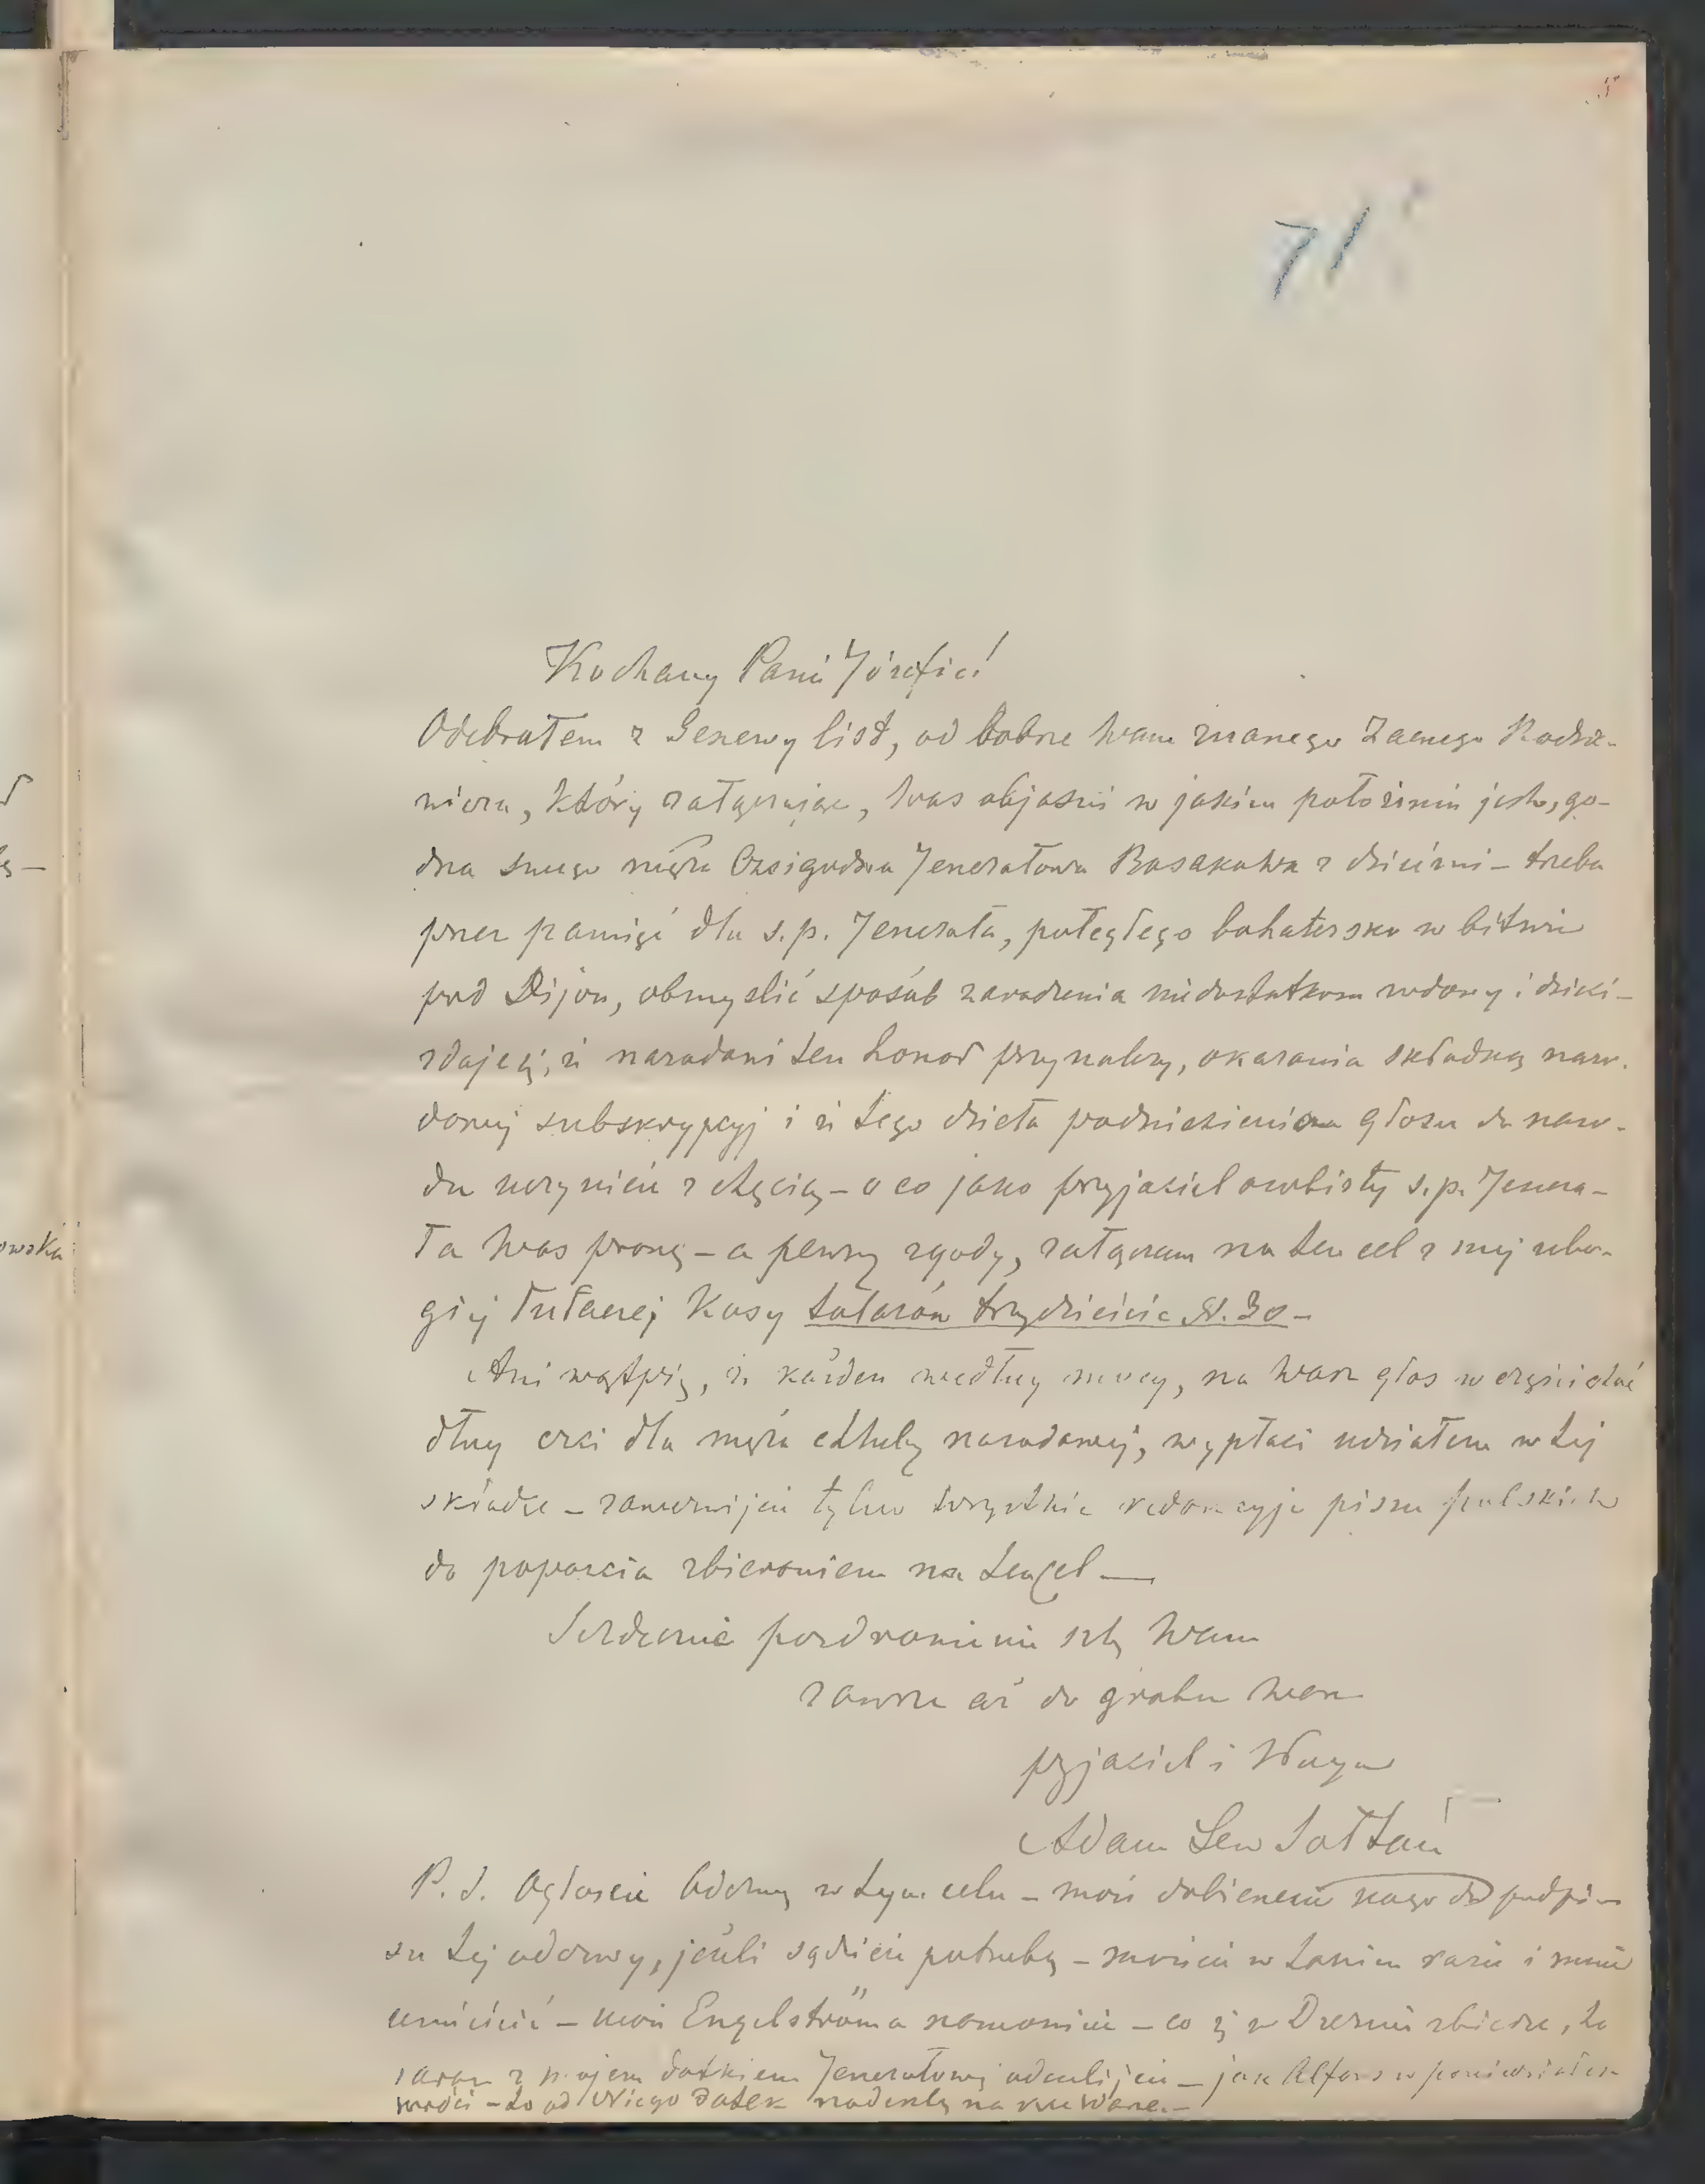 71
Kochany Panie Józefie!
Odebrałem z Genewy list, od dobrze Wam znanego zacnego
który załączając, Was objaśni w jakim położeniu jest, go-
dna swego męża Czcigodna Jenerałowa Bosakowa z dziećmi – trzeba
przez pamięć dla s.p. Jenerała, poległego bohatersko w bitwie
pod Dijon, obmyslić sposób zaradzenia niedostatkom wdowy i dzieci –
zdaje się, iż narodowi ten honor przynależy, okazania składką naro-
dowej subskrypcyj i iż tego dzieła podniesieniem głosu do naro-
du uczynicie z chęcią – o co jako przyjaciel osobisty s.p. Jenera-
ła Was proszę – a pewny zgody, załączam na ten cel z mej ubo-
giej tułaczej Kasy talarów trzydzieście N. 30 –
Ani wątpię, iż każden według mocy, na Wasz głos
dług czci dla męża chluby narodowej, wypłaci udziałem w tej
składce – zawezwijcie tylko wszystkie redakcyje pism polskich
do poparcia zbieraniem na ten cel —
Serdeczne pozdrowienie szlę Wam
zawsze aż do grobu Wasz
przjaciel i Sługa
Adam Lew Sołtan
P. S. Ogłoście Odezwę w tym celu – może dobierzecie kogo do podpi-
su tej odezwy, jeśli sądzicie potrzebę – możecie w takim razie i mnie
umieścić – może Engelströma namówicie – co się w Dreznie zbierze, to
zaraz z mojem datkiem Jenerałowej odeslijcie – jak Alfons
to od Niego datek nadeszlę na ręce Wasze. –
owska